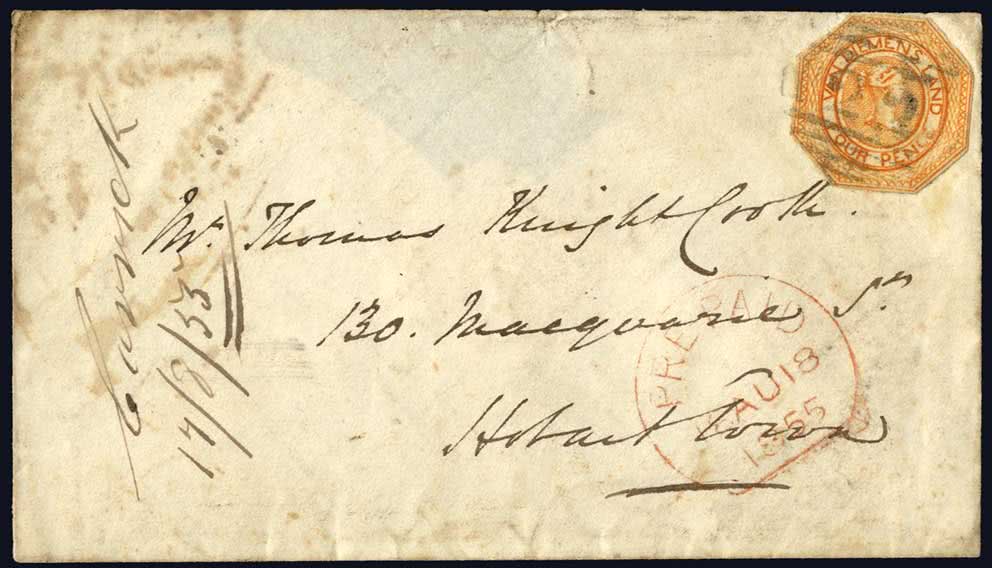 VAN DIEMENS LAND
FOUR PENCE
Mr. Thomas Knight Cooth.
130. Macquarie St.
Hobart Town
PRE PAID
AU 18
1855
Carrick
17/8/55